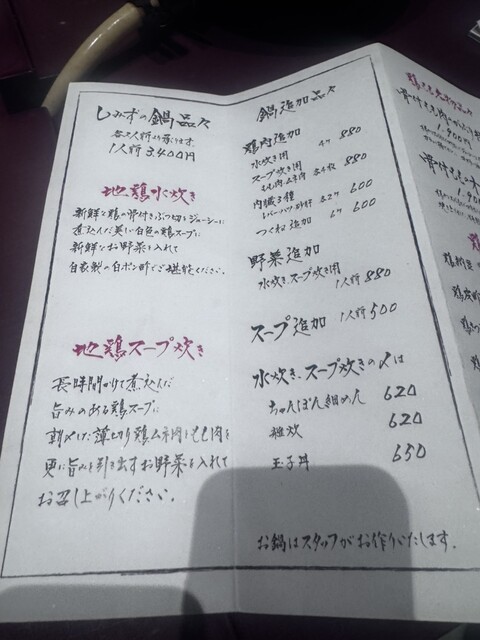 しみずの鍋品々
各2人前より承ります
1人前 3,400円
地鶏水炊き
新鮮な鶏の骨付きぶつ切りをジューシーに
煮込んだ美しい白色の鶏スープに
新鮮なお野菜を入れて
自家製の白ポン酢でご堪能ください。
地鶏スープ炊き
長時間かけて煮込んだ
旨みのある鶏スープに
朝〆した薄切り鶏ムネ肉ともも肉を
更に旨みを引き出すお野菜を入れて
お召し上がりください。
鍋追加品々
鶏肉追加
水炊き用 4ヶ 880
スープ炊き用 880
もも肉ムネ肉 各4枚
内臓3種 600
レバーハツ砂肝 各2ヶ
つくね追加 6ヶ 600
野菜追加
水炊き、スープ炊き用 1人前 880
スープ追加 1人前 500
水炊き、スープ炊きの〆は
ちゃんぽん細めん 620
雑炊 620
玉子丼 650
お鍋はスタッフがお作りいたします。
1,900円